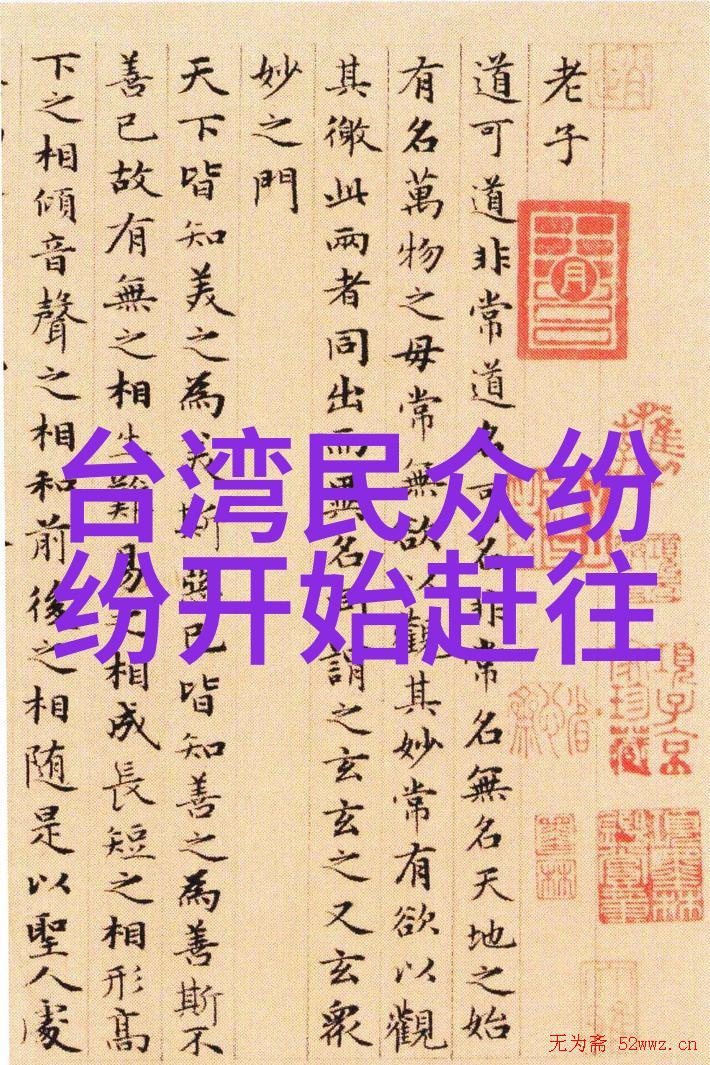 老子
道可道非常道名可名非常名無名天地之始
有名萬物之母常無欲以觀其妙常有欲以觀
其徼此兩者同出而異名同謂之玄玄之又玄衆
妙之門
天下皆知美之為美斯惡已皆知善之為善斯不
善已故有無之相生難易之相成長短之相形高
下之相傾音聲之相和前後之相随是以聖人處
台湾民众纷
纷开始赶往
項子京
家珍藏
无为斋 52wwz.cn